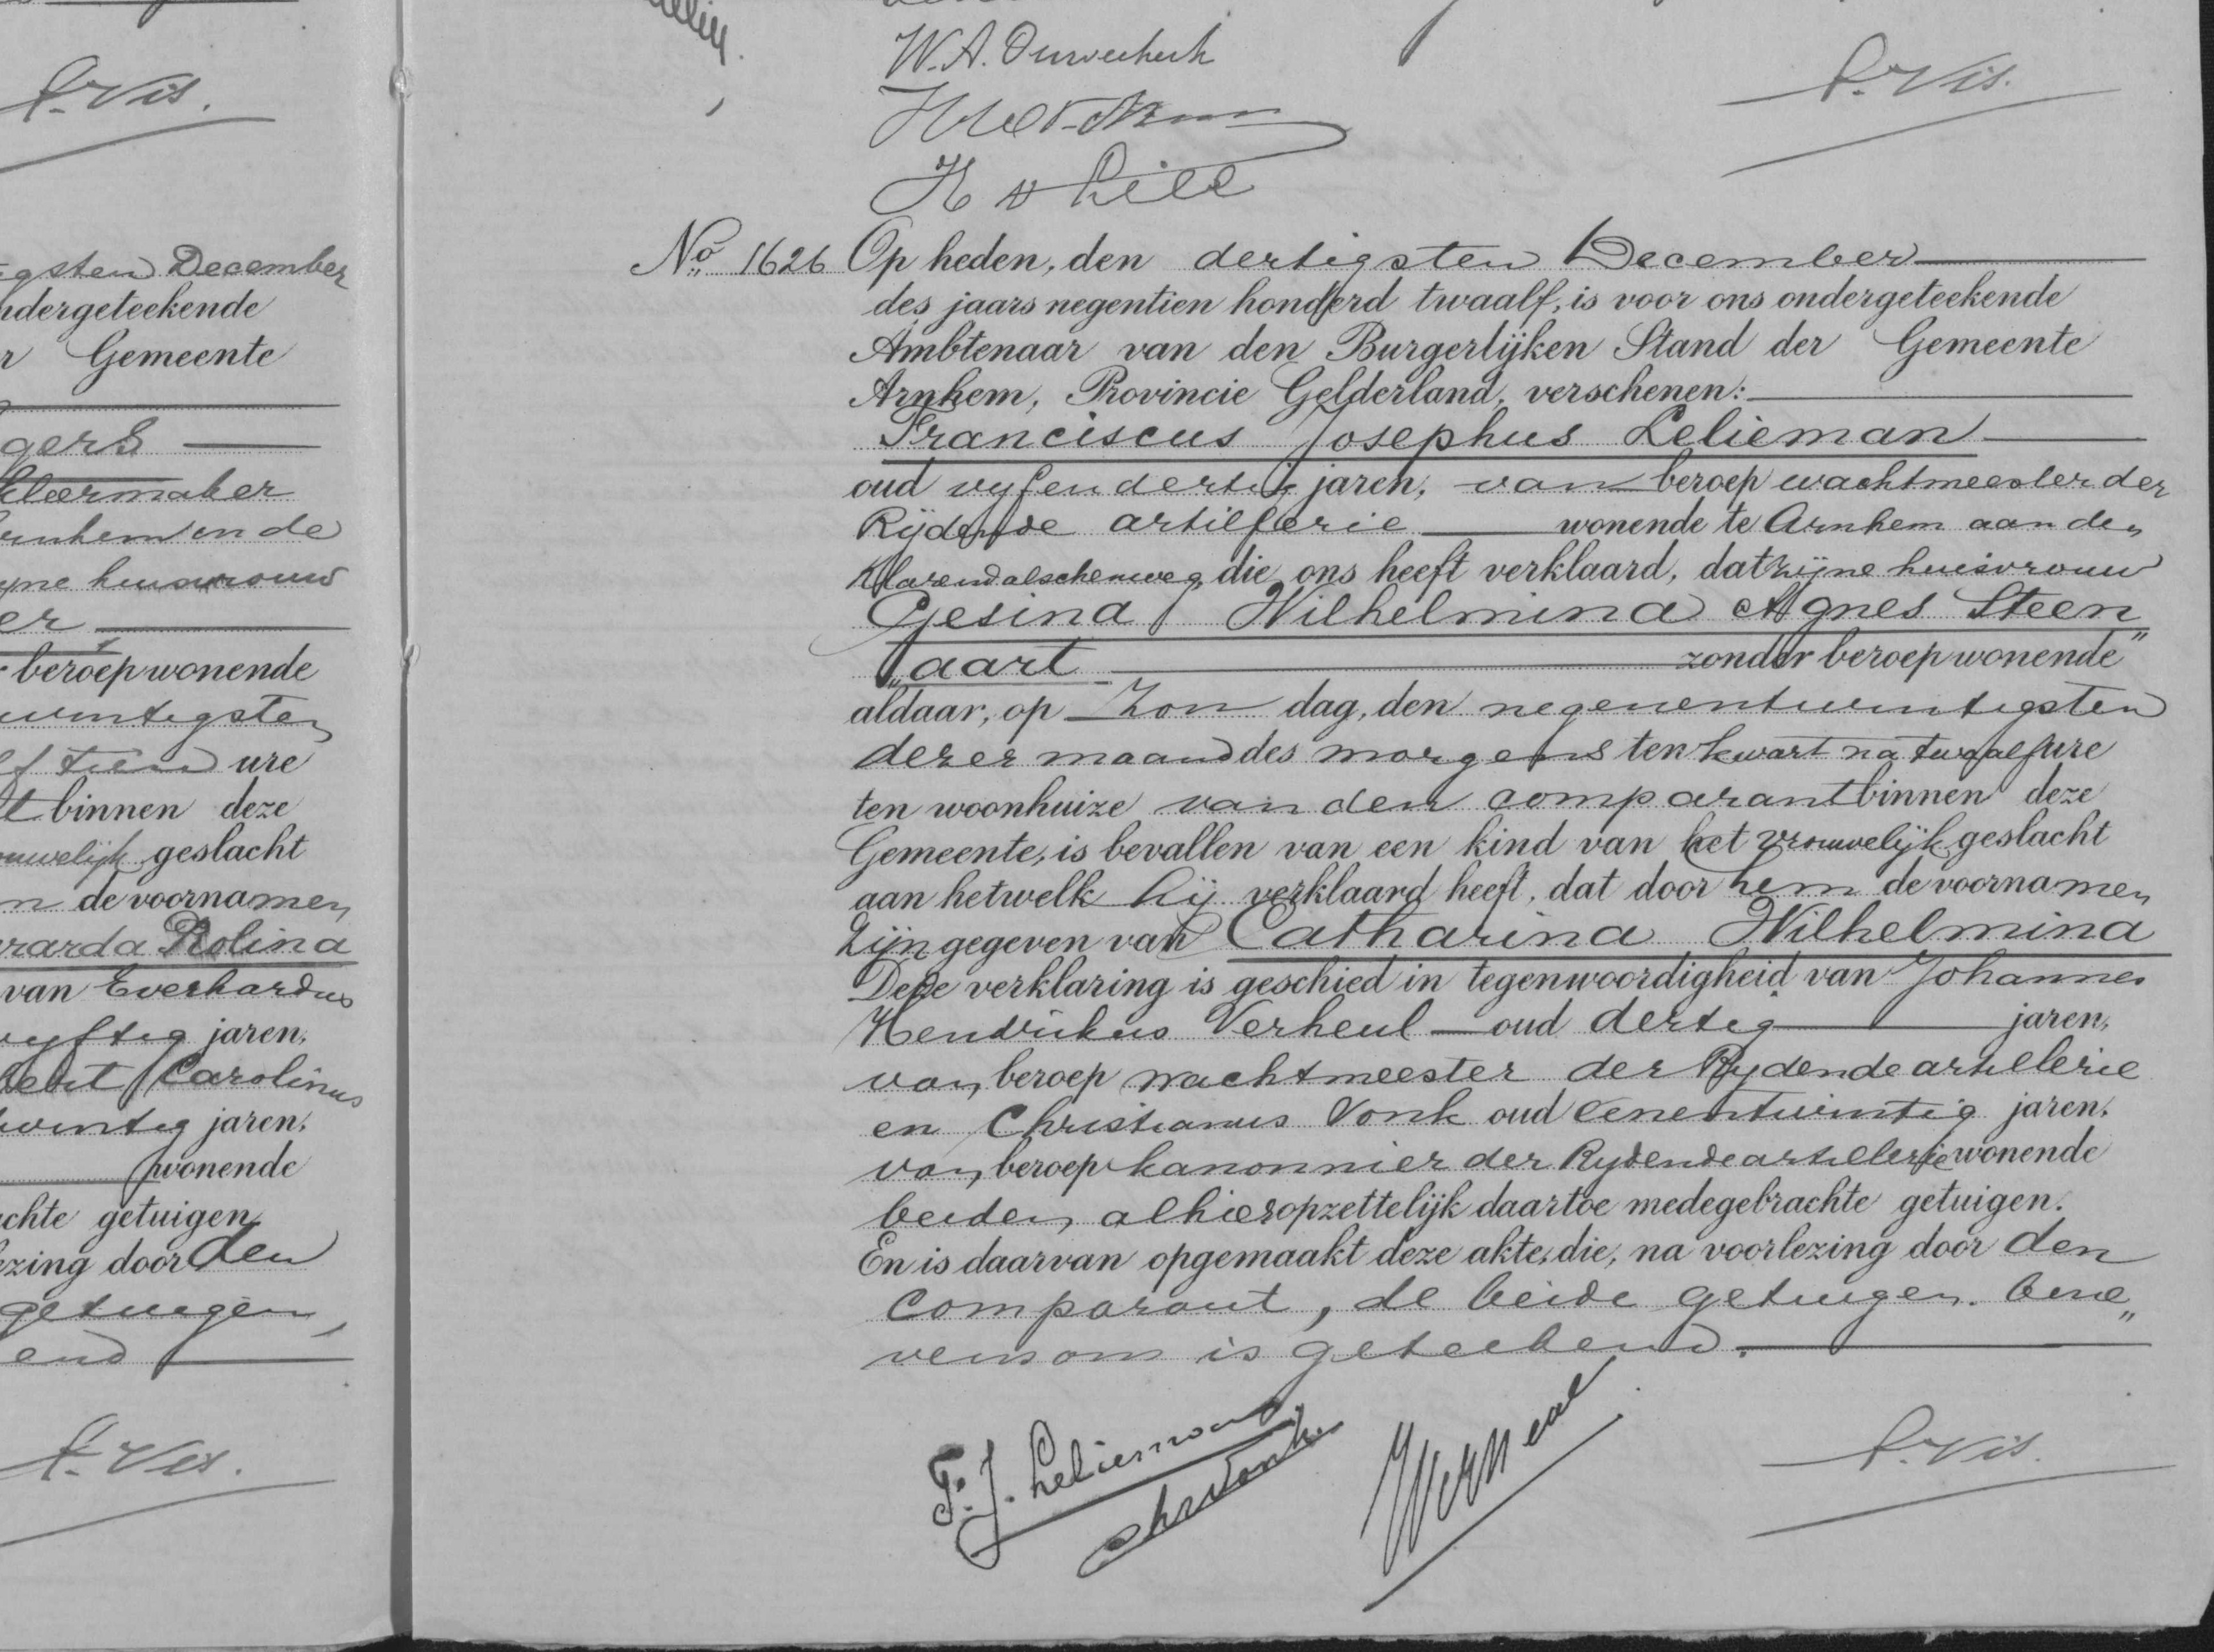 A. Vis.
gsten December
ndergeteekende
r Gemeente
gers
kleermaker
rnhem in de
yne huisvrouw
er
beroep wonende
wintigsten
lf tien ure
t binnen deze
ouwelijk geslacht
n de voornamen
rarda Rolina
van Everhardus
vyftig jaren,
Carolinus
wintig jaren,
wonende
achte getuigen.
ezing door den
getuigen,
end
A. Vis.
W.A. Ouwerkerk
A. Vis.
No 1626 Op heden, den dertigsten December
des jaars negentien honderd twaalf, is voor ons ondergeteekende
Ambtenaar van den Burgerlijken Stand der Gemeente
Arnhem, Provincie Gelderland, verschenen:
Franciscus Josephus Lelieman
oud vyfendertig jaren, van beroep wachtmeester der
Rijdende artillerie wonende te Arnhem aan den
Klarendalschenweg, die ons heeft verklaard, dat zijne huisvrouw
Gesina Wilhelmina Agnes Steen„
„aart zonder beroep wonende
aldaar, op Zondag, den negenentwintigsten
dezer maand des morgens ten kwart na twaalf ure
ten woonhuize van den comparant binnen deze
Gemeente, is bevallen van een kind van het vrouwelijk geslacht
aan hetwelk hij verklaard heeft, dat door hem de voornamen
zijn gegeven van Catharina Wilhelmina
Deze verklaring is geschied in tegenwoordigheid van Johannes
Hendrikus Verheul oud dertig jaren,
van beroep wachtmeester der Rydende artillerie
en Christianus Vonk oud eenentwintig jaren,
van beroep kanonnier der Rydende artillerie wonende
beiden alhier opzettelijk daartoe medegebrachte getuigen.
En is daarvan opgemaakt deze akte, die, na voorlezing door den
comparant, de beide getuigen bene„
vens ons is geteekend.
F. J. Lelieman
Chr Vonk
A. Vis.